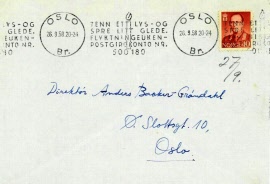 OSLO
OSLO
LYS-OG
GLEDE.
NTO NR.
26.9.58 20-24
Br.
TENN ET LYS-OG
SPRE LITT GLEDE.
FLYKTNINGEUKEN-
POSTGIROKONTO NR.
500180
26.9.58 20-24
Br.
27/9.
Direktør Anders
O. Slottsgt. 10,
Oslo.